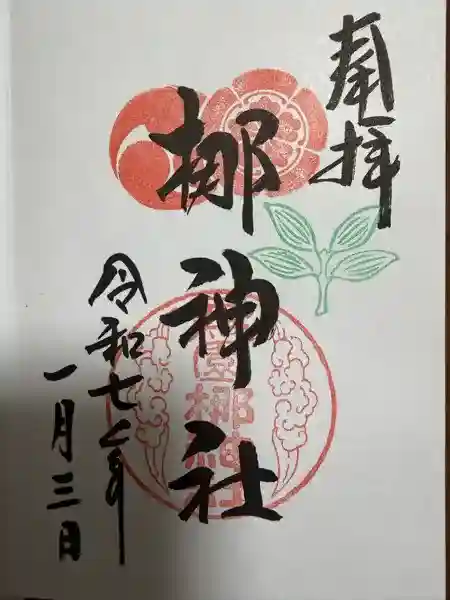 奉拝
梛神社
園梛神社
令和七年
一月三日